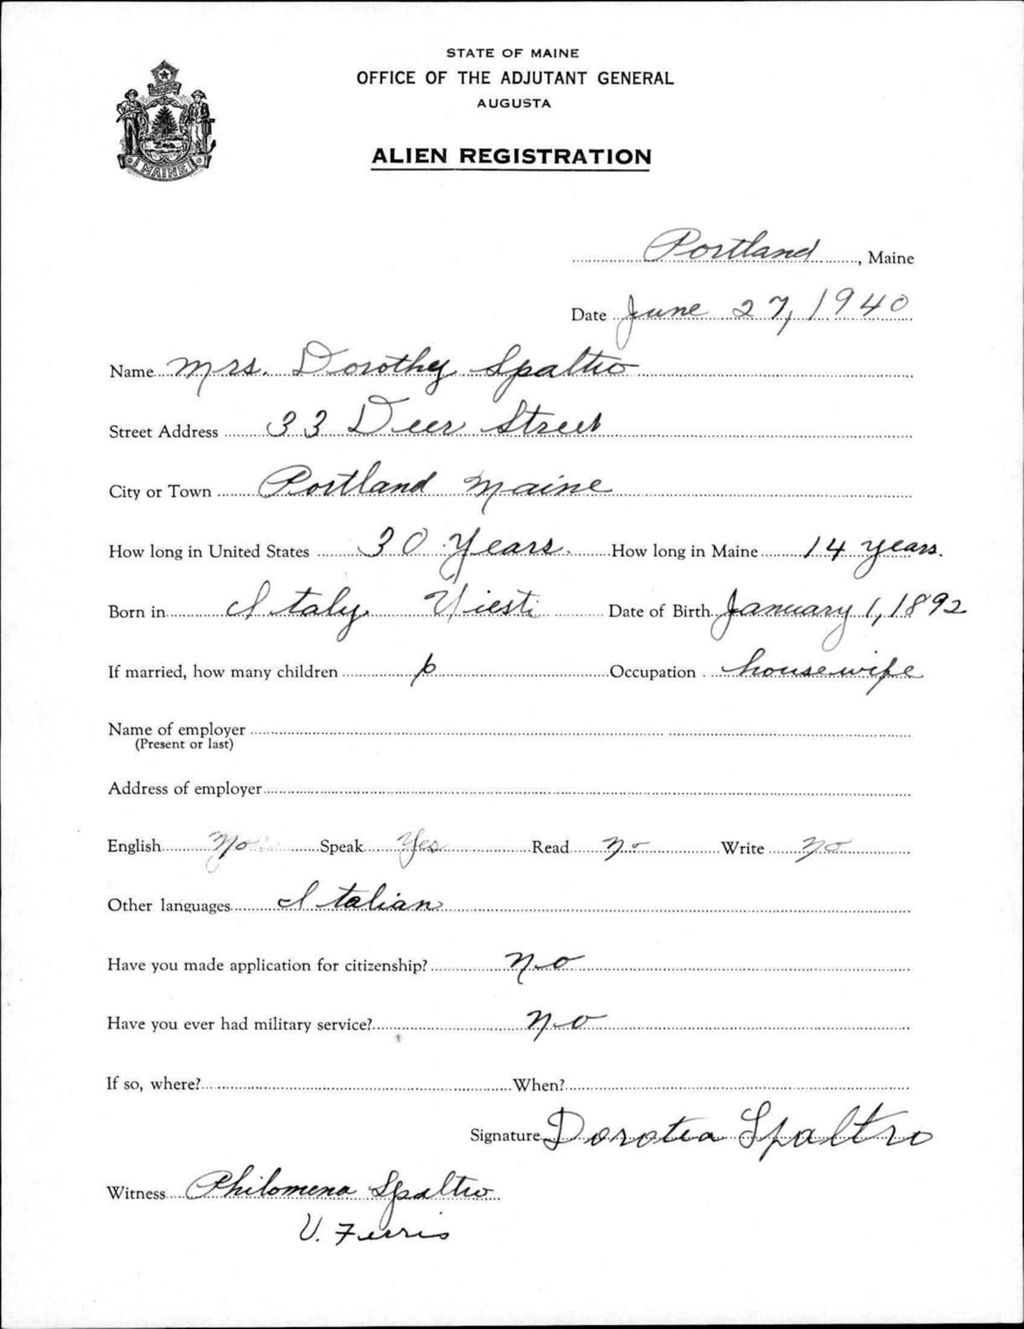 STATE OF MAINE
OFFICE OF THE ADJUTANT GENERAL
AUGUSTA
ALIEN REGISTRATION
MAINE
Portland, Maine
Date June 27, 1940
Name Mrs. Dorothy Spaltro
Street Address 33 Deer Street
City or Town Portland Maine
How long in United States 30 Years. How long in Maine 14 years.
Born in Italy Viesti Date of Birth January 1, 1892
If married, how many children 6 Occupation housewife
Name of employer
(Present or last)
Address of employer
English No Speak Yes Read no Write no
Other languages Italian
Have you made application for citizenship? No
Have you ever had military service? No
If so, where? When?
Signature Dorotea Spaltro
Witness Philomena Spaltro
V. Ferris